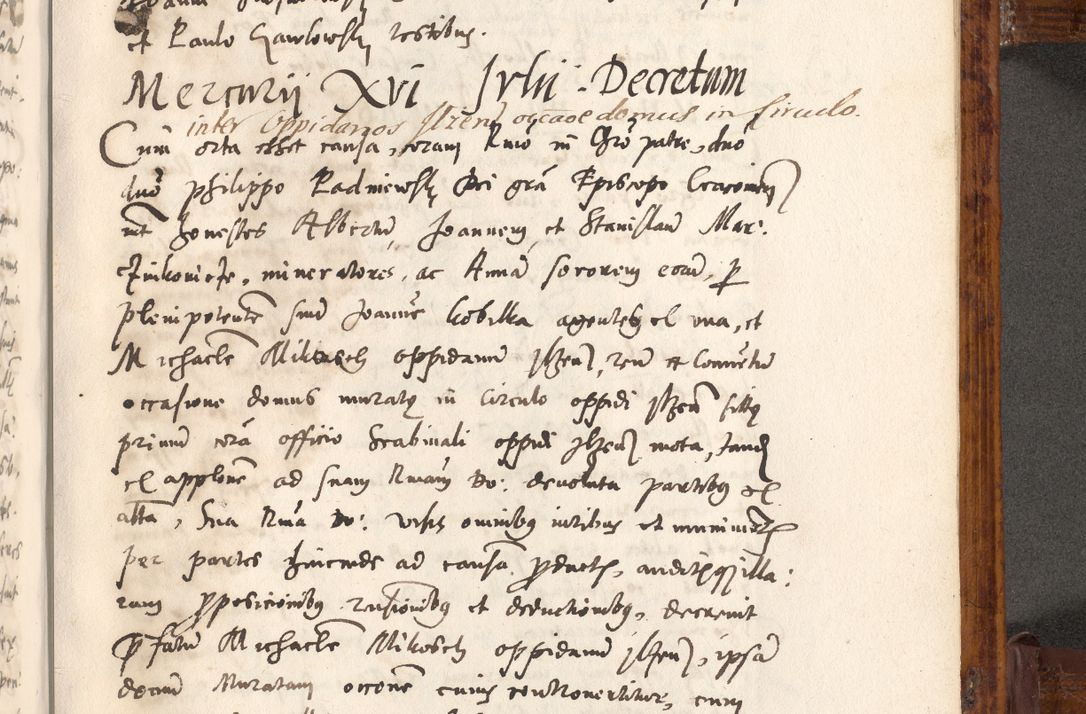 et Paulo Gawlowsky testibus.
Mercurij XVI Julii Decretum
inter oppidanos Ilzen occãoe domus in circulo.
Cum orta esset causa, coram Rmo in Chro patre, dno
dno Philippo Padniewsky Dei gra Episcopo Cracovien
int honestos Albertu, Joannem, et Stanislau Mar.
mineratores, ac Anna sororem eoru, p
plenipotente suu Joanne Kobilka agentes ex una, et
Michaele Mikosch oppidanu Ilzen, reu et conventu
occasione domus murate in Circulo oppidi Ilzen site
primu cora officio Scabinali oppidi Ilzen mota, tande
ex applone ad suam Rmam Do: devoluta partibus ex
alta, Sua Rma Do: visis omnibus iuribus et munimet
per partes hincinde ad causa productis, auditisq illa:
rum pposicionibus rationibus et deductionibus, decrevit
pfatu Michaele Mikosch oppidanu Ilzen, ipsa
domu Muratam occone cuius controvertitur, cum